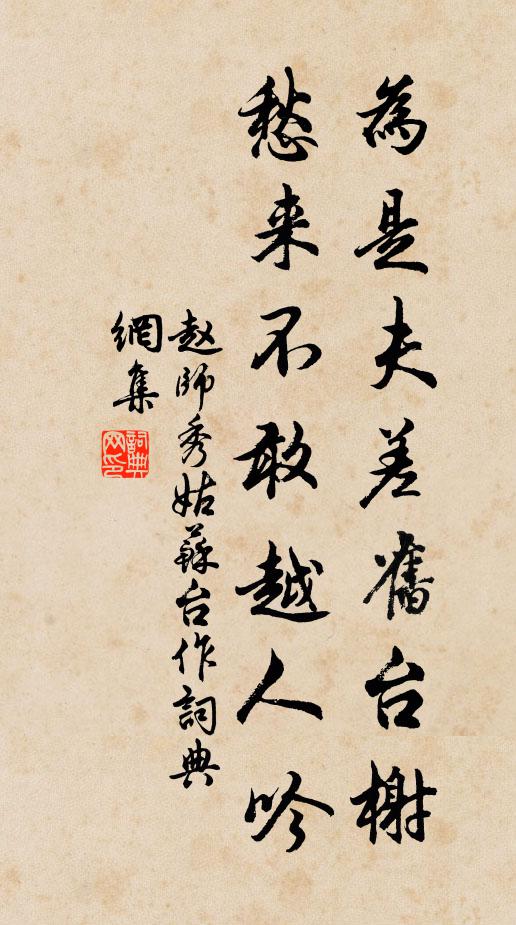 為是夫差舊台榭
愁来不敢越人吟
赵師秀姑蘇台作詞典
網集
詞典
网印